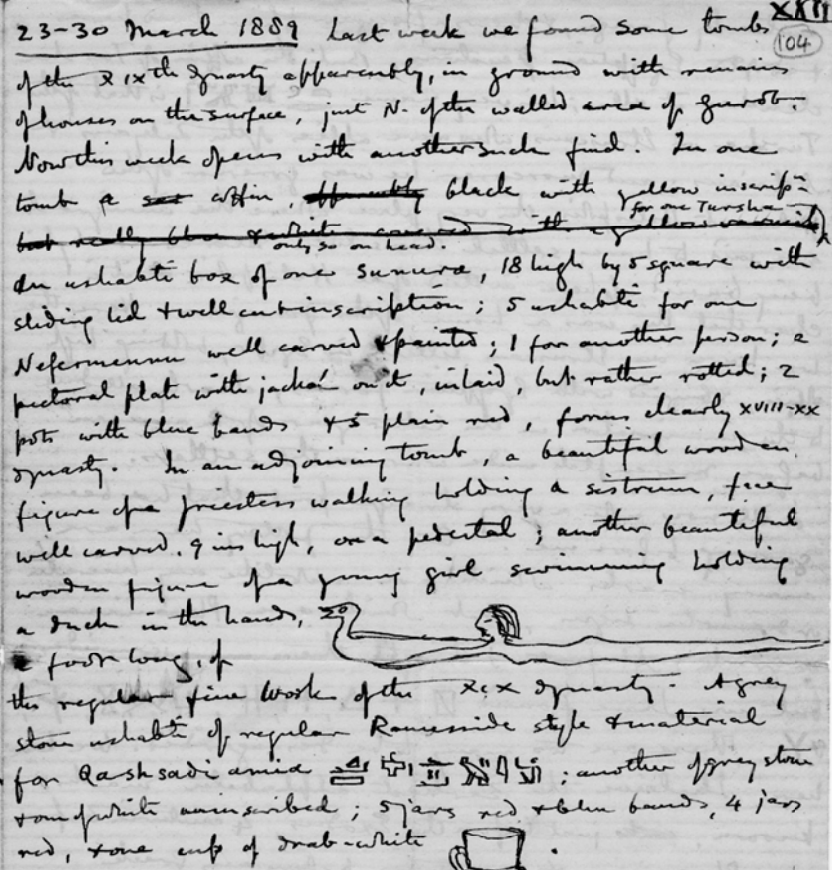 XXII
104
23-30 March 1889 Last week we found some tombs
of the XIXth dynasty apparently, in ground with remains
of houses on the surface, just N. of the walled area of Gurob.
Now this week opens with another such find. In one
tomb a coffin, apparently black with yellow inscripn
for one Tursha
but really blue & white covered with a yellow varnish
only so on head.
An ushabti box of one Sunura, 18 high by 5 square with
sliding lid & well cut inscription; 5 ushabtis for one
Nefermennu well carved & painted; 1 for another person; a
pectoral plate with jackal on it, inlaid, but rather rotted; 2
pots with blue bands & 5 plain red, forms clearly XVIII-XX
dynasty. In an adjoining tomb, a beautiful wooden
figure of a priestess walking holding a sistrum, face
well carved, 9 ins high, on a pedestal; another beautiful
wooden figure of a young girl swimming holding
a duck in the hands,
foot long, of
the regular fine work of the XIX dynasty. A grey
stone ushabti of regular Ramesside style & material
for Qashsadiamia ; another of grey stone
& one of white uninscribed; 5 jars red & blue bands, 4 jars
red, & one cup of drab-white .